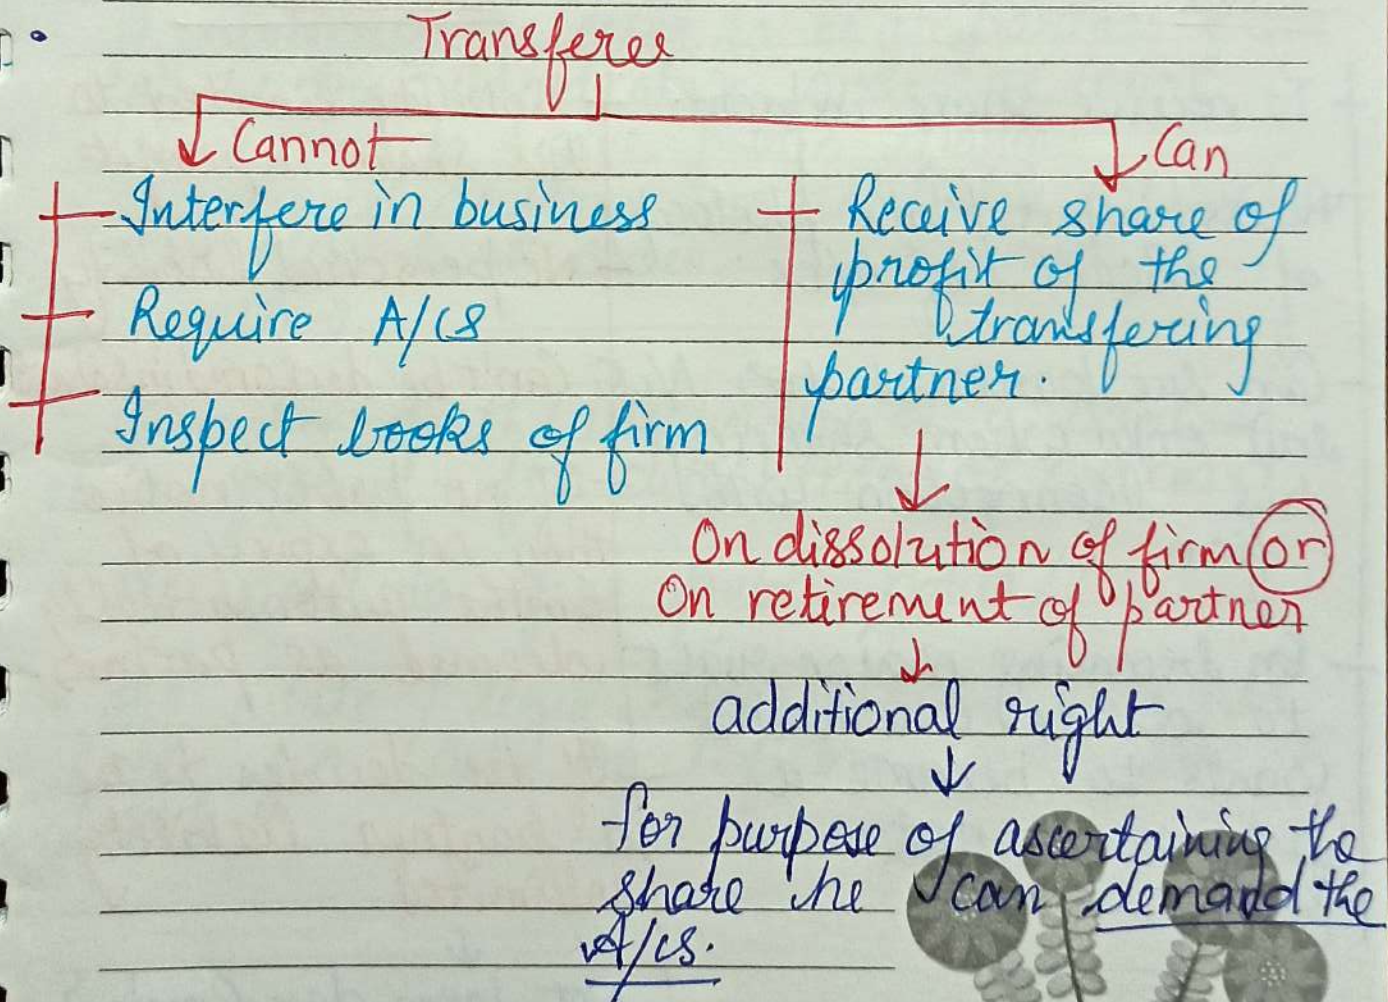 Transferee
Cannot
Can
Interfere in business
Require A/cs
Inspect books of firm
Receive share of
profit of the
transfering
partner.
On dissolution of firm or
On retirement of partner
additional right
for purpose of ascertaining the
share he can demand the
A/cs.